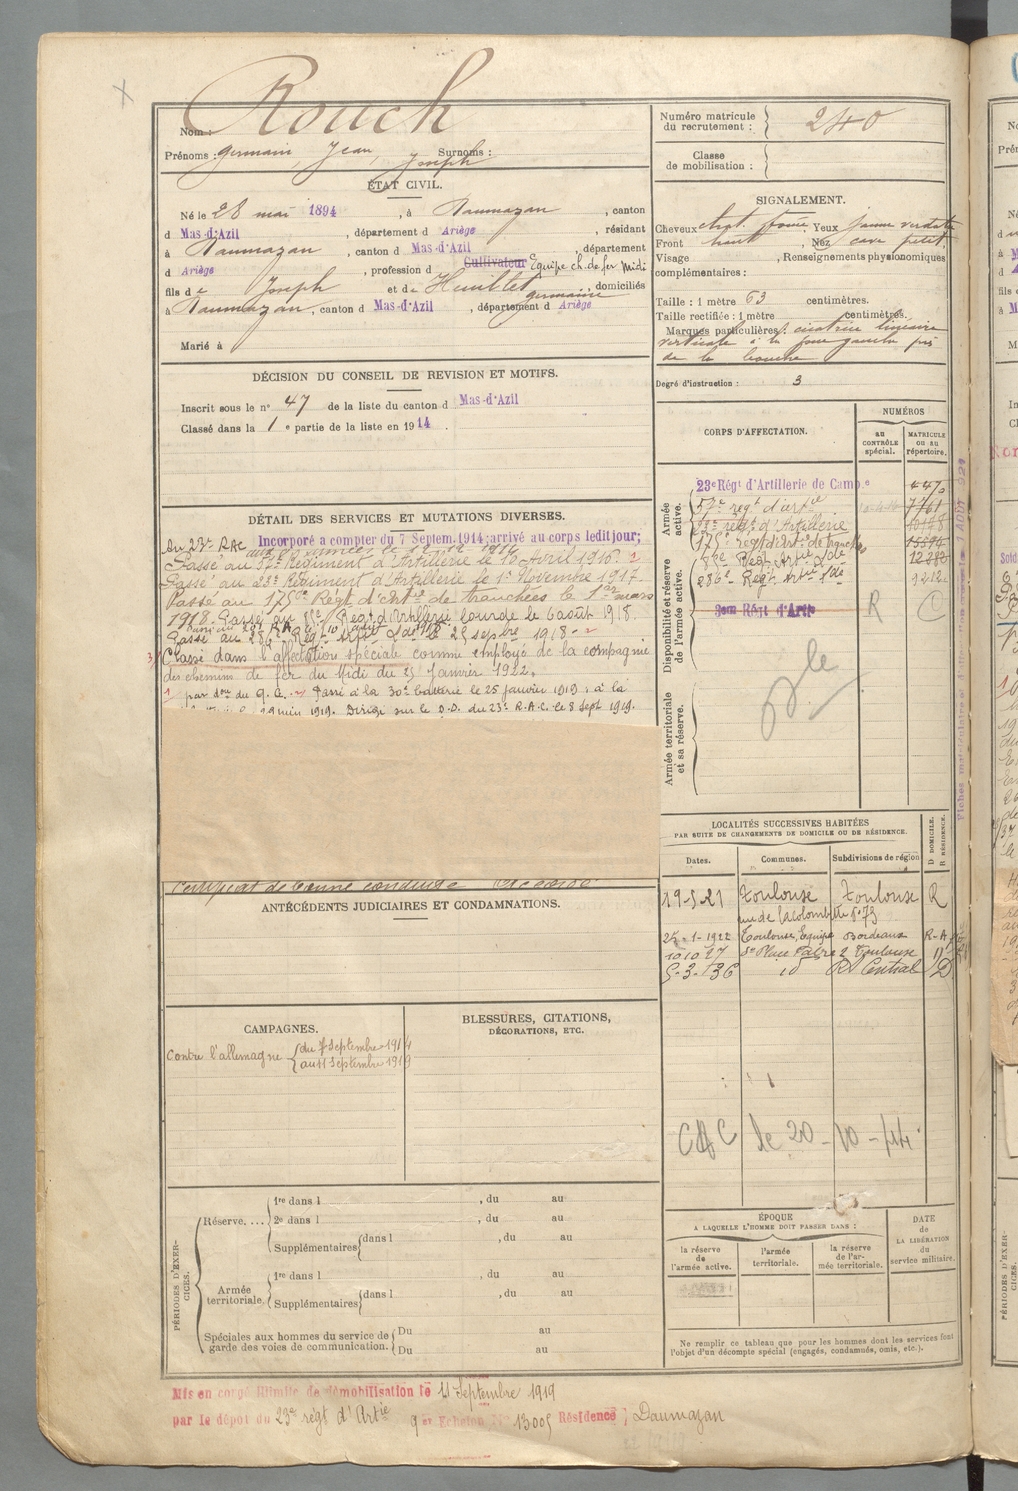 Rouch
Nom :
Prénoms : Germain, Jean, Joseph Surnoms :
Numéro matricule du recrutement : 240
Classe de mobilisation :
ÉTAT CIVIL.
Né le 28 mai 1894, à Daumazan, canton
d Mas-d'Azil, département d Ariège, résidant
à Daumazan, canton d Mas-d'Azil, département
d Ariège, profession d Cultivateur Equipe ch. de fer Midi
fils de Joseph et de Huillet Germaine, domiciliés
à Daumazan, canton d Mas-d'Azil, département d Ariège
Marié à
SIGNALEMENT.
Cheveux chat. foncé, Yeux jaune verdatre
Front haut, Nez cave petit
Visage , Renseignements physionomiques
complémentaires :
Taille : 1 mètre 63 centimètres.
Taille rectifiée : 1 mètre centimètres.
Marques particulières : cicatrice linéaire
verticale à la joue gauche près
de la bouche
Degré d'instruction : 3
DÉCISION DU CONSEIL DE REVISION ET MOTIFS.
Inscrit sous le n° 47 de la liste du canton d Mas-d'Azil
Classé dans la 1 e partie de la liste en 1914.
DÉTAIL DES SERVICES ET MUTATIONS DIVERSES.
Au 23e RAC Incorporé à compter du 7 Septem. 1914; arrivé au corps ledit jour;
aux armées le 12 12 1914
Passé au 57e Régiment d'Artillerie le 10 Avril 1916. 1
Passé au 23e Régiment d'Artillerie le 1er Novembre 1917.
Passé au 175e Régt d'Artie de tranchées le 1er mars
1918. Passé au 82e Régt d'Artillerie lourde le 6 août 1918.
Passé au 286e Régt Artie Lde le 28 sepbre 1918. 2
3) Classé dans l'affectation spéciale comme employé de la compagnie
des chemins de fer du Midi du 25 Janvier 1922.
1 par don du G.Q. 2 Passé à la 30e batterie le 25 janvier 1919; à la
juin 1919. Dirigé sur le D.D. du 23e R.A.C. le 8 Sept 1919.
Certificat de bonne conduite accordé
CORPS D'AFFECTATION.
NUMÉROS
au CONTRÔLE spécial.
MATRICULE OU AU répertoire.
Armée active.
23e Régt d'Artillerie de Camp.e 4470
57e régt d'artie 7761
23e régt d'Artillerie
175e régt d'Art.ie de tranchées
82e Régt Artie Lde
286e Régt Artie Lde 1212
Disponibilité et réserve de l'armée active.
3em Régt d'Artie R C
Armée territoriale et sa réserve.
LOCALITÉS SUCCESSIVES HABITÉES
PAR SUITE DE CHANGEMENTS DE DOMICILE OU DE RÉSIDENCE.
Dates. Communes. Subdivisions de région D DOMICILE. R RÉSIDENCE.
19-5-21 Toulouse Toulouse R
rue de lacolombette n°75
25-1-1922 Toulouse, Equipe Bordeaux R-A
10 10 27 Place Fabre 2 Toulouse D
5-3-136 id R Central D
CAC le 20-10-44
ANTÉCÉDENTS JUDICIAIRES ET CONDAMNATIONS.
CAMPAGNES.
Contre l'allemagne { du 7 Septembre 1914
au 11 Septembre 1919
BLESSURES, CITATIONS,
DÉCORATIONS, ETC.
PÉRIODES D'EXERCICES.
Réserve. ... 1re dans l , du au
2e dans l , du au
Supplémentaires dans l , du au
Armée territoriale. 1re dans l , du au
Supplémentaires dans l , du au
Spéciales aux hommes du service de garde des voies de communication. Du au
Du au
ÉPOQUE
A LAQUELLE L'HOMME DOIT PASSER DANS :
la réserve de l'armée active.
l'armée territoriale.
la réserve de l'armée territoriale.
DATE de LA LIBÉRATION du service militaire.
Ne remplir ce tableau que pour les hommes dont les services font
l'objet d'un décompte spécial (engagés, condamnés, omis, etc.).
Mis en congé illimité de démobilisation le 11 Septembre 1919
par le dépôt du 23e régt d'Artie 9e Echelon N° 13005 Résidence } Daumazan